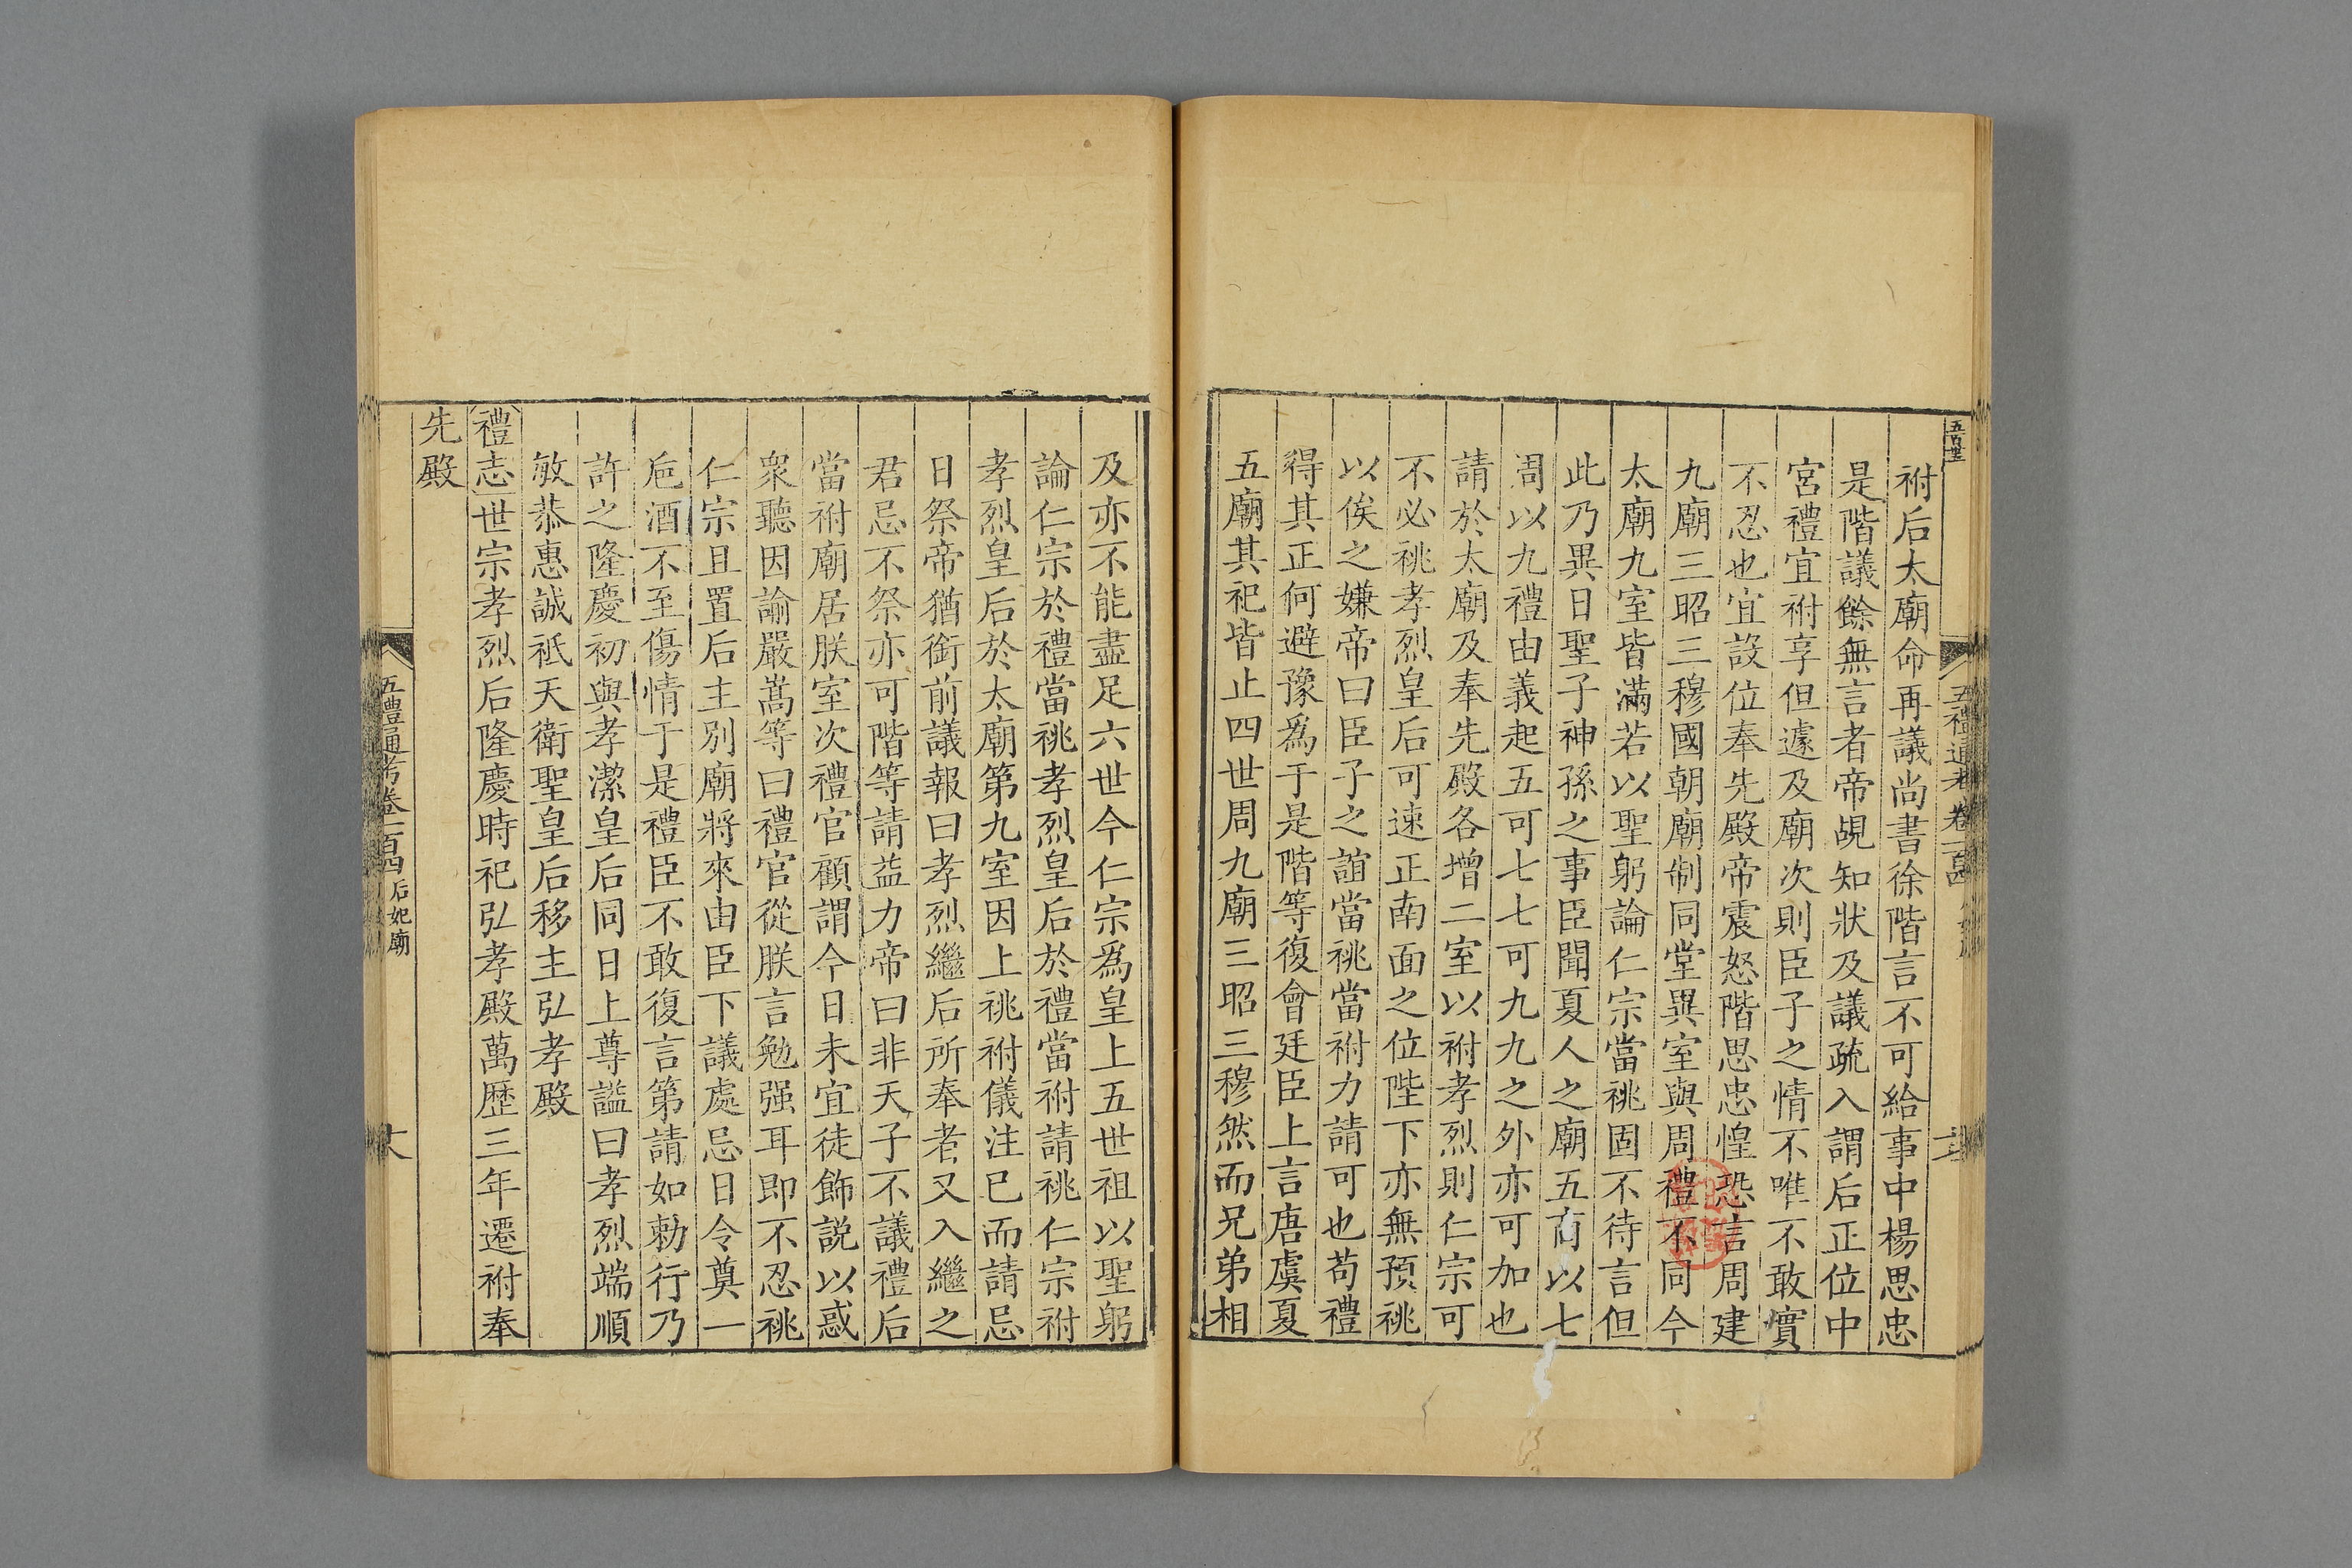 祔后太廟命再議尚書徐階言不可給事中楊思忠
是階議餘無言者帝覘知狀及議疏入謂后正位中
宮禮宜祔享但遽及廟次則臣子之情不唯不敢實
不忍也宜設位奉先殿帝震怒階思忠惶恐言周建
九廟三昭三穆國朝廟制同堂異室與周禮不同今
太廟九室皆滿若以聖躬論仁宗當祧固不待言但
此乃異日聖子神孫之事臣聞夏人之廟五商以七
周以九禮由義起五可七七可九九之外亦可加也
請於太廟及奉先殿各增二室以祔孝烈則仁宗可
不必祧孝烈皇后可速正南面之位陛下亦無預祧
以俟之嫌帝曰臣子之誼當祧當祔力請可也苟禮
得其正何避豫爲于是階等復會廷臣上言唐虞夏
五廟其祀皆止四世周九廟三昭三穆然而兄弟相
及亦不能盡足六世今仁宗爲皇上五世祖以聖躬
論仁宗於禮當祧孝烈皇后於禮當祔請祧仁宗祔
孝烈皇后於太廟第九室因上祧祔儀注已而請忌
日祭帝猶銜前議報曰孝烈繼后所奉者又入繼之
君忌不祭亦可階等請益力帝曰非天子不議禮后
當祔廟居朕室次禮官顧謂今日未宜徒飾説以惑
衆聽因諭嚴嵩等曰禮官從朕言勉强耳即不忍祧
仁宗且置后主別廟將來由臣下議處忌日令奠一
巵酒不至傷情于是禮臣不敢復言第請如勅行乃
許之隆慶初與孝潔皇后同日上尊謚曰孝烈端順
敏恭惠誠祗天衛聖皇后移主弘孝殿
禮志世宗孝烈后隆慶時祀弘孝殿萬歷三年遷祔奉
先殿
五禮通考卷一百四 后妃廟